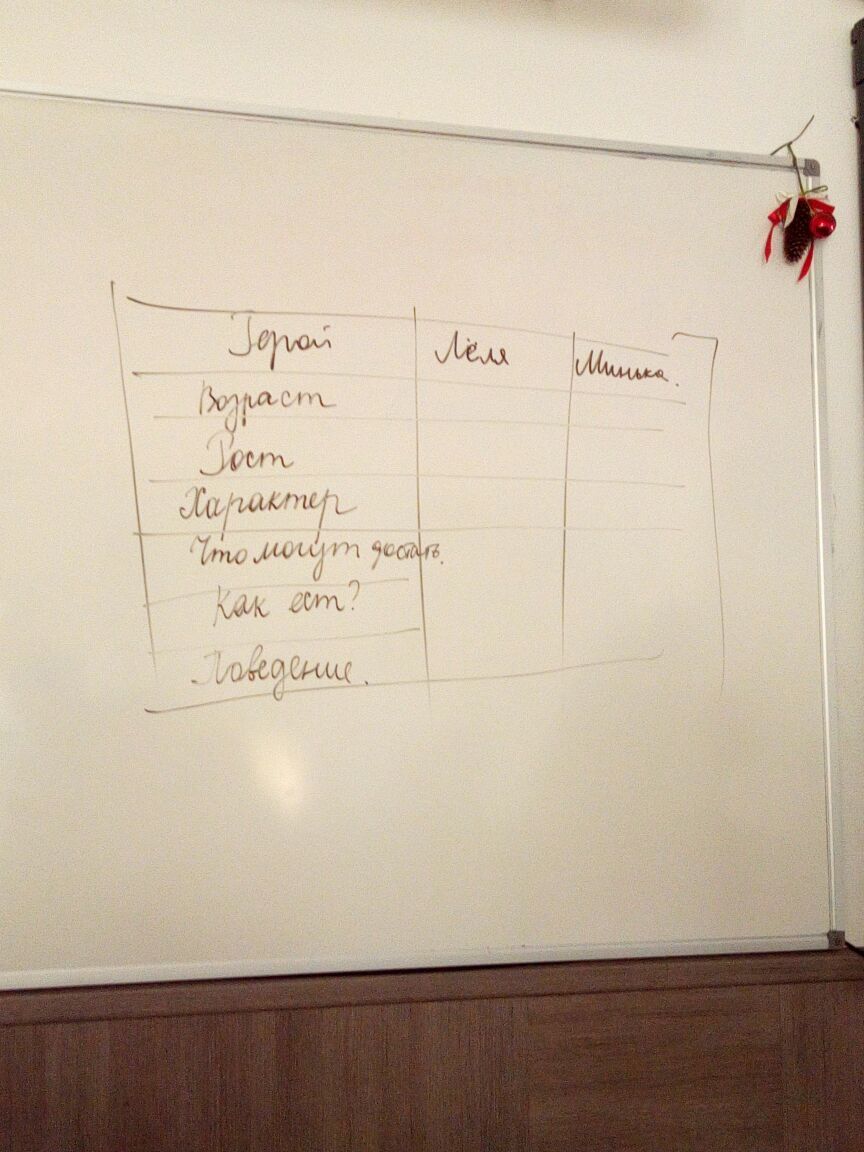 Герой Лёля Минька.
Возраст
Рост
Характер
Что могут достать.
Как ест?
Поведение.